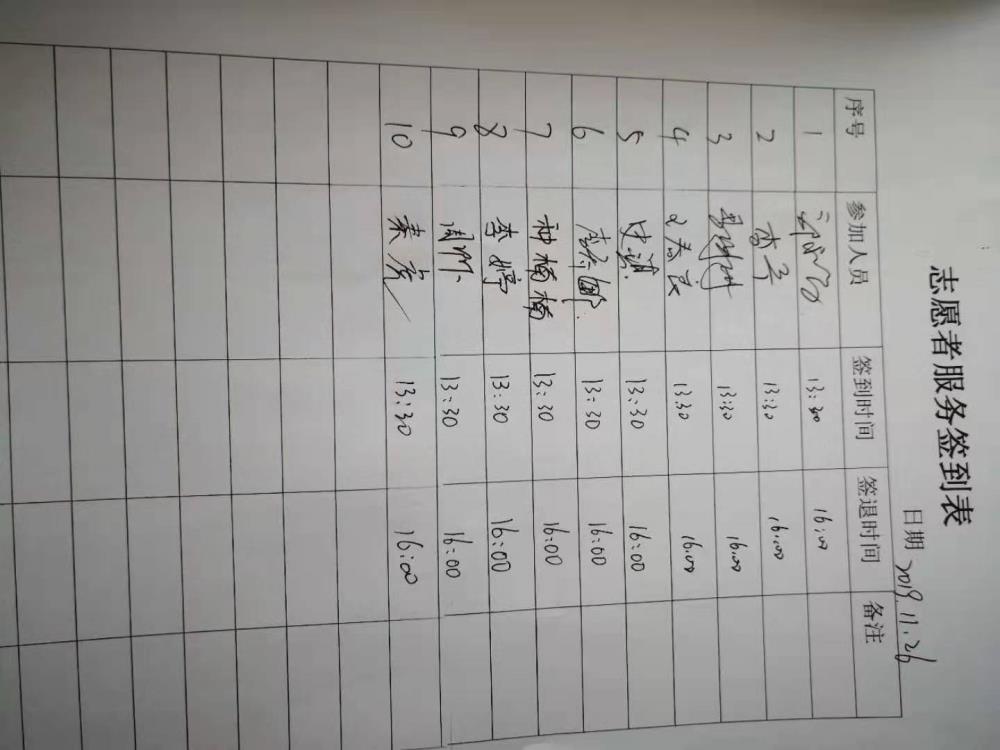 志愿者服务签到表
日期 2019.11.26
序号 参加人员 签到时间 签退时间 备注
1 13:30 16:00
2 李平 13:30 16:00
3 13:30 16:00
4 13:30 16:00
5 史斌 13:30 16:00
6 13:30 16:00
7 种楠楠 13:30 16:00
8 李婷 13:30 16:00
9 周 13:30 16:00
10 秦虎 13:30 16:00